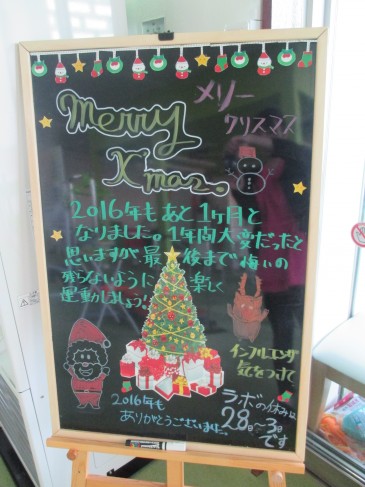 Merry
Xmas.
メリー
クリスマス
2016年もあと1ヶ月と
なりました。1年間大変だったと
思いますが最後まで悔いの
残らないように楽しく
運動しましょう!!
インフルエンザ
気をつけて
2016年も
ありがとうございました。
ラボの休みは
28日~3日
です